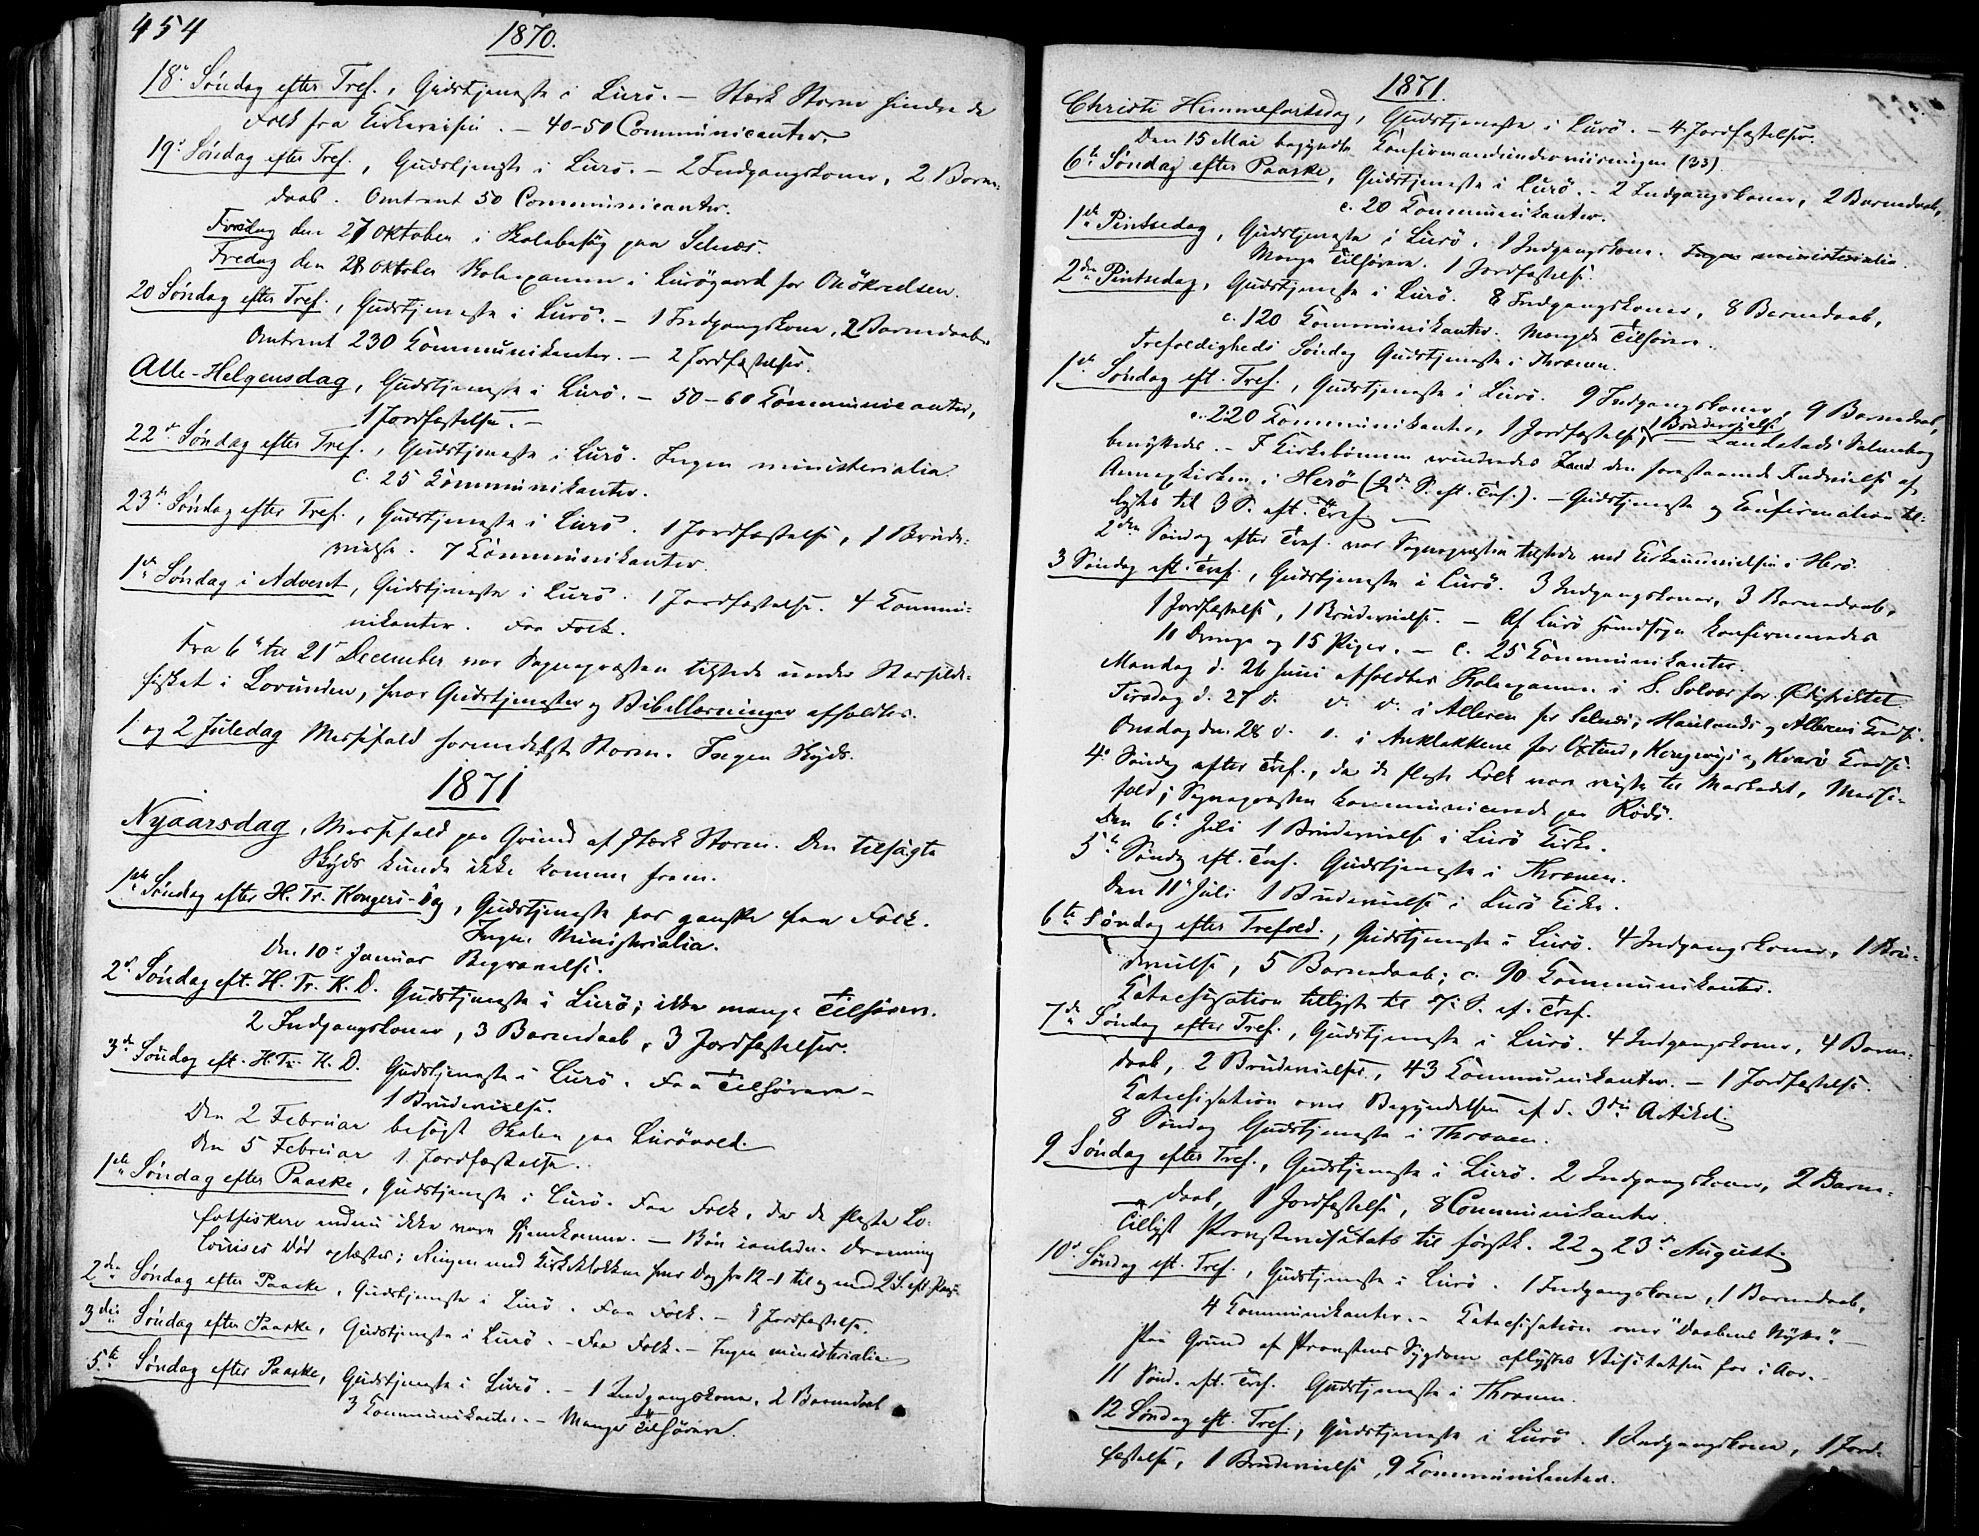 454
1870.
18de Søndag efter Tref., Gudstjeneste i Lurö. — Stærk Storm hindrede
Folk fra Kirkereisen. — 40-50 Communicanter.
19de Søndag efter Tref., Gudstjeneste i Lurö. — 2 Indgangskoner, 2 Barne-
daab. Omtrent 50 Communicanter.
den 27 Oktober i Skolebesög paa Selnæs.
Fredag den 28 Oktober Skoleexamen i Lurögaard for Onökredsen.
20 Søndag efter Tref., Gudstjeneste i Lurö. — 1 Indgangskone, 2 Barnedaab.
Omtrent 230 Kommunikanter. — 2 Jordfæstelser.
Alle-Helgensdag, Gudstjeneste i Lurö. — 50-60 Kommunicanter,
1 Jordfæstelse. —
22de Søndag efter Tref., Gudstjeneste i Lurö. Ingen ministerialia.
c. 25 Kommunikanter.
23de Søndag efter Tref., Gudstjeneste i Lurö. 1 Jordfæstelse, 1 Brude-
vielse. 7 Kommunikanter.
1ste Søndag i Advent, Gudstjeneste i Lurö. 1 Jordfæstelse. 4 Kommu-
nikanter. Faa Folk.
Fra 6te til 21de December var Sognepræsten tilstede under Storsilde-
fisket i Lovunden, hvor Gudstjenester og Bibellæsninger afholdtes.
1 og 2 Juledag Messefald formedelst Storm. Ingen Skyds.
1871
Nyaarsdag, Messefald paa Grund af stærk Storm. Den tilsagte
Skyds kunde ikke komme frem.
1ste Søndag efter H. Tr. Kongers-Dag, Gudstjeneste for ganske faa Folk.
Ingen Ministerialia.
Den 10de Januar Begravelse.
2de Søndag eft. H. Tr. K. D. Gudstjeneste i Lurö; ikke mange Tilhörere.
2 Indgangskoner, 3 Barnedaab, 3 Jordfæstelser.
3de Søndag eft. H. Tr. K. D. Gudstjeneste i Lurö. Faa Tilhörere —
1 Brudevielse.
Den 2 Februar besögt Skolen paa Lurövold.
Den 5 Februar 1 Jordfæstelse.
1ste Søndag efter Paaske, Gudstjeneste i Lurö. Faa Folk, da de fleste Lo-
fotfiskere endnu ikke vare hjemkomne. — Bön i anledn. Dronning
Louises Död oplæstes; Ringen med Kirkeklokken hver Dag fra 12-1 til og med 2 S. eft. Paaske.
2den Søndag efter Paaske, Gudstjeneste i Lurö. Faa Folk. — 1 Jordfæstelse.
3die Søndag efter Paaske, Gudstjeneste i Lurö. — Faa Folk. — Ingen ministerialia.
5te Søndag efter Paaske, Gudstjeneste i Lurö. — 1 Indgangskone, 2 Barnedaab
3 Kommunikanter. — Mange Tilhörere.
1871.
Christi Himmelfartsdag, Gudstjeneste i Lurö. — 4 Jordfæstelser.
Den 15 Mai begyndte Konfirmandundervisningen (33).
6te Søndag efter Paaske, Gudstjeneste i Lurö. — 2 Indgangskoner, 2 Barnedaab,
c. 20 Kommunikanter.
1ste Pintsedag, Gudstjeneste i Lurö. 1 Indgangskone. Ingen ministerialia.
Mange Tilhörere. 1 Jordfæstelse.
2den Pintsedag, Gudstjeneste i Lurö. 8 Indgangskoner, 8 Barnedaab,
c. 120 Kommunikanter. Mengde Tilhörere.
Trefoldigheds Søndag Gudstjeneste i Thrænen.
1ste Søndag eft. Tref., Gudstjeneste i Lurö. 9 Indgangskoner, 9 Barnedaab,
c. 220 Kommunikanter, 1 Jordfæstelse, 1 Brudevielse. Landstads Salmebog
benyttedes. — I Kirkebönnen den forestaaende Indvielse af
Annexkirken i Herö (2den S. eft. Tref.). — Gudstjeneste og Confirmation til-
lystes til 3 S. eft. Tref. —
2den Søndag efter Tref. var Sognepræsten tilstede ved Kirkeindvielsen i Herö.
3 Søndag eft. Tref., Gudstjeneste i Lurö. 3 Indgangskoner, 3 Barnedaab,
1 Jordfæstelse, 1 Brudevielse. — Af Lurö Hovedsogn konfirmeredes
10 Drenge og 15 Piger. — c. 25 Kommunikanter.
Mandag d. 26 Juni afholdtes Skoleexamen i S. Solvær for Ødistriktet
Tirsdag d. 27 d. d. d. i Alleren for Selnes, Haulands og Allerens Kredse.
Onsdag den 28 d. d. i Anklakkene for Oxtind, Kongsvigs og Kvarö Kredse.
4de Søndag efter Tref., da de fleste Folk vare reiste til Markedet, Messe-
fald; Sognepræsten kommunicerede paa Rödö.
Den 6te Juli 1 Brudevielse i Lurö Kirke.
5te Søndag eft. Tref. Gudstjeneste i Thrænen.
Den 11te Juli 1 Brudevielse i Lurö Kirke.
6te Søndag efter Trefold., Gudstjeneste i Lurö. 4 Indgangskoner, 1 Bru-
devielse, 5 Barnedaab; c. 90 Kommunikanter.
Katechisation tillyst til 7de S. ef. Tref.
7de Søndag efter Tref., Gudstjeneste i Lurö. 4 Indgangskoner, 4 Barne-
daab, 2 Brudevielser, 43 Kommunikanter. — 1 Jordfæstelse.
Katechisation over Begyndelsen af d. 3die Artikel.
8 Søndag Gudstjeneste i Thrænen.
9 Søndag efter Tref., Gudstjeneste i Lurö. 2 Indgangskoner, 2 Barne-
daab, 1 Jordfæstelse, 8 Communikanter.
Tillyst Provstevisitats til førstk. 22 og 23de August.
10de Søndag eft. Tref., Gudstjeneste i Lurö. 1 Indgangskone, 1 Barnedaab,
4 Kommunikanter. — Katechisation over "Daabens Nytte". —
Paa Grund af Provstens Sygdom aflystes Visitatsen for i Aar. —
11 Sönd. eft. Tref. Gudstjeneste i Thrænen.
12 Søndag eft. Tref., Gudstjeneste i Lurö. 1 Indgangskone, 1 Jord-
fæstelse, 1 Brudevielse, 9 Kommunikanter.